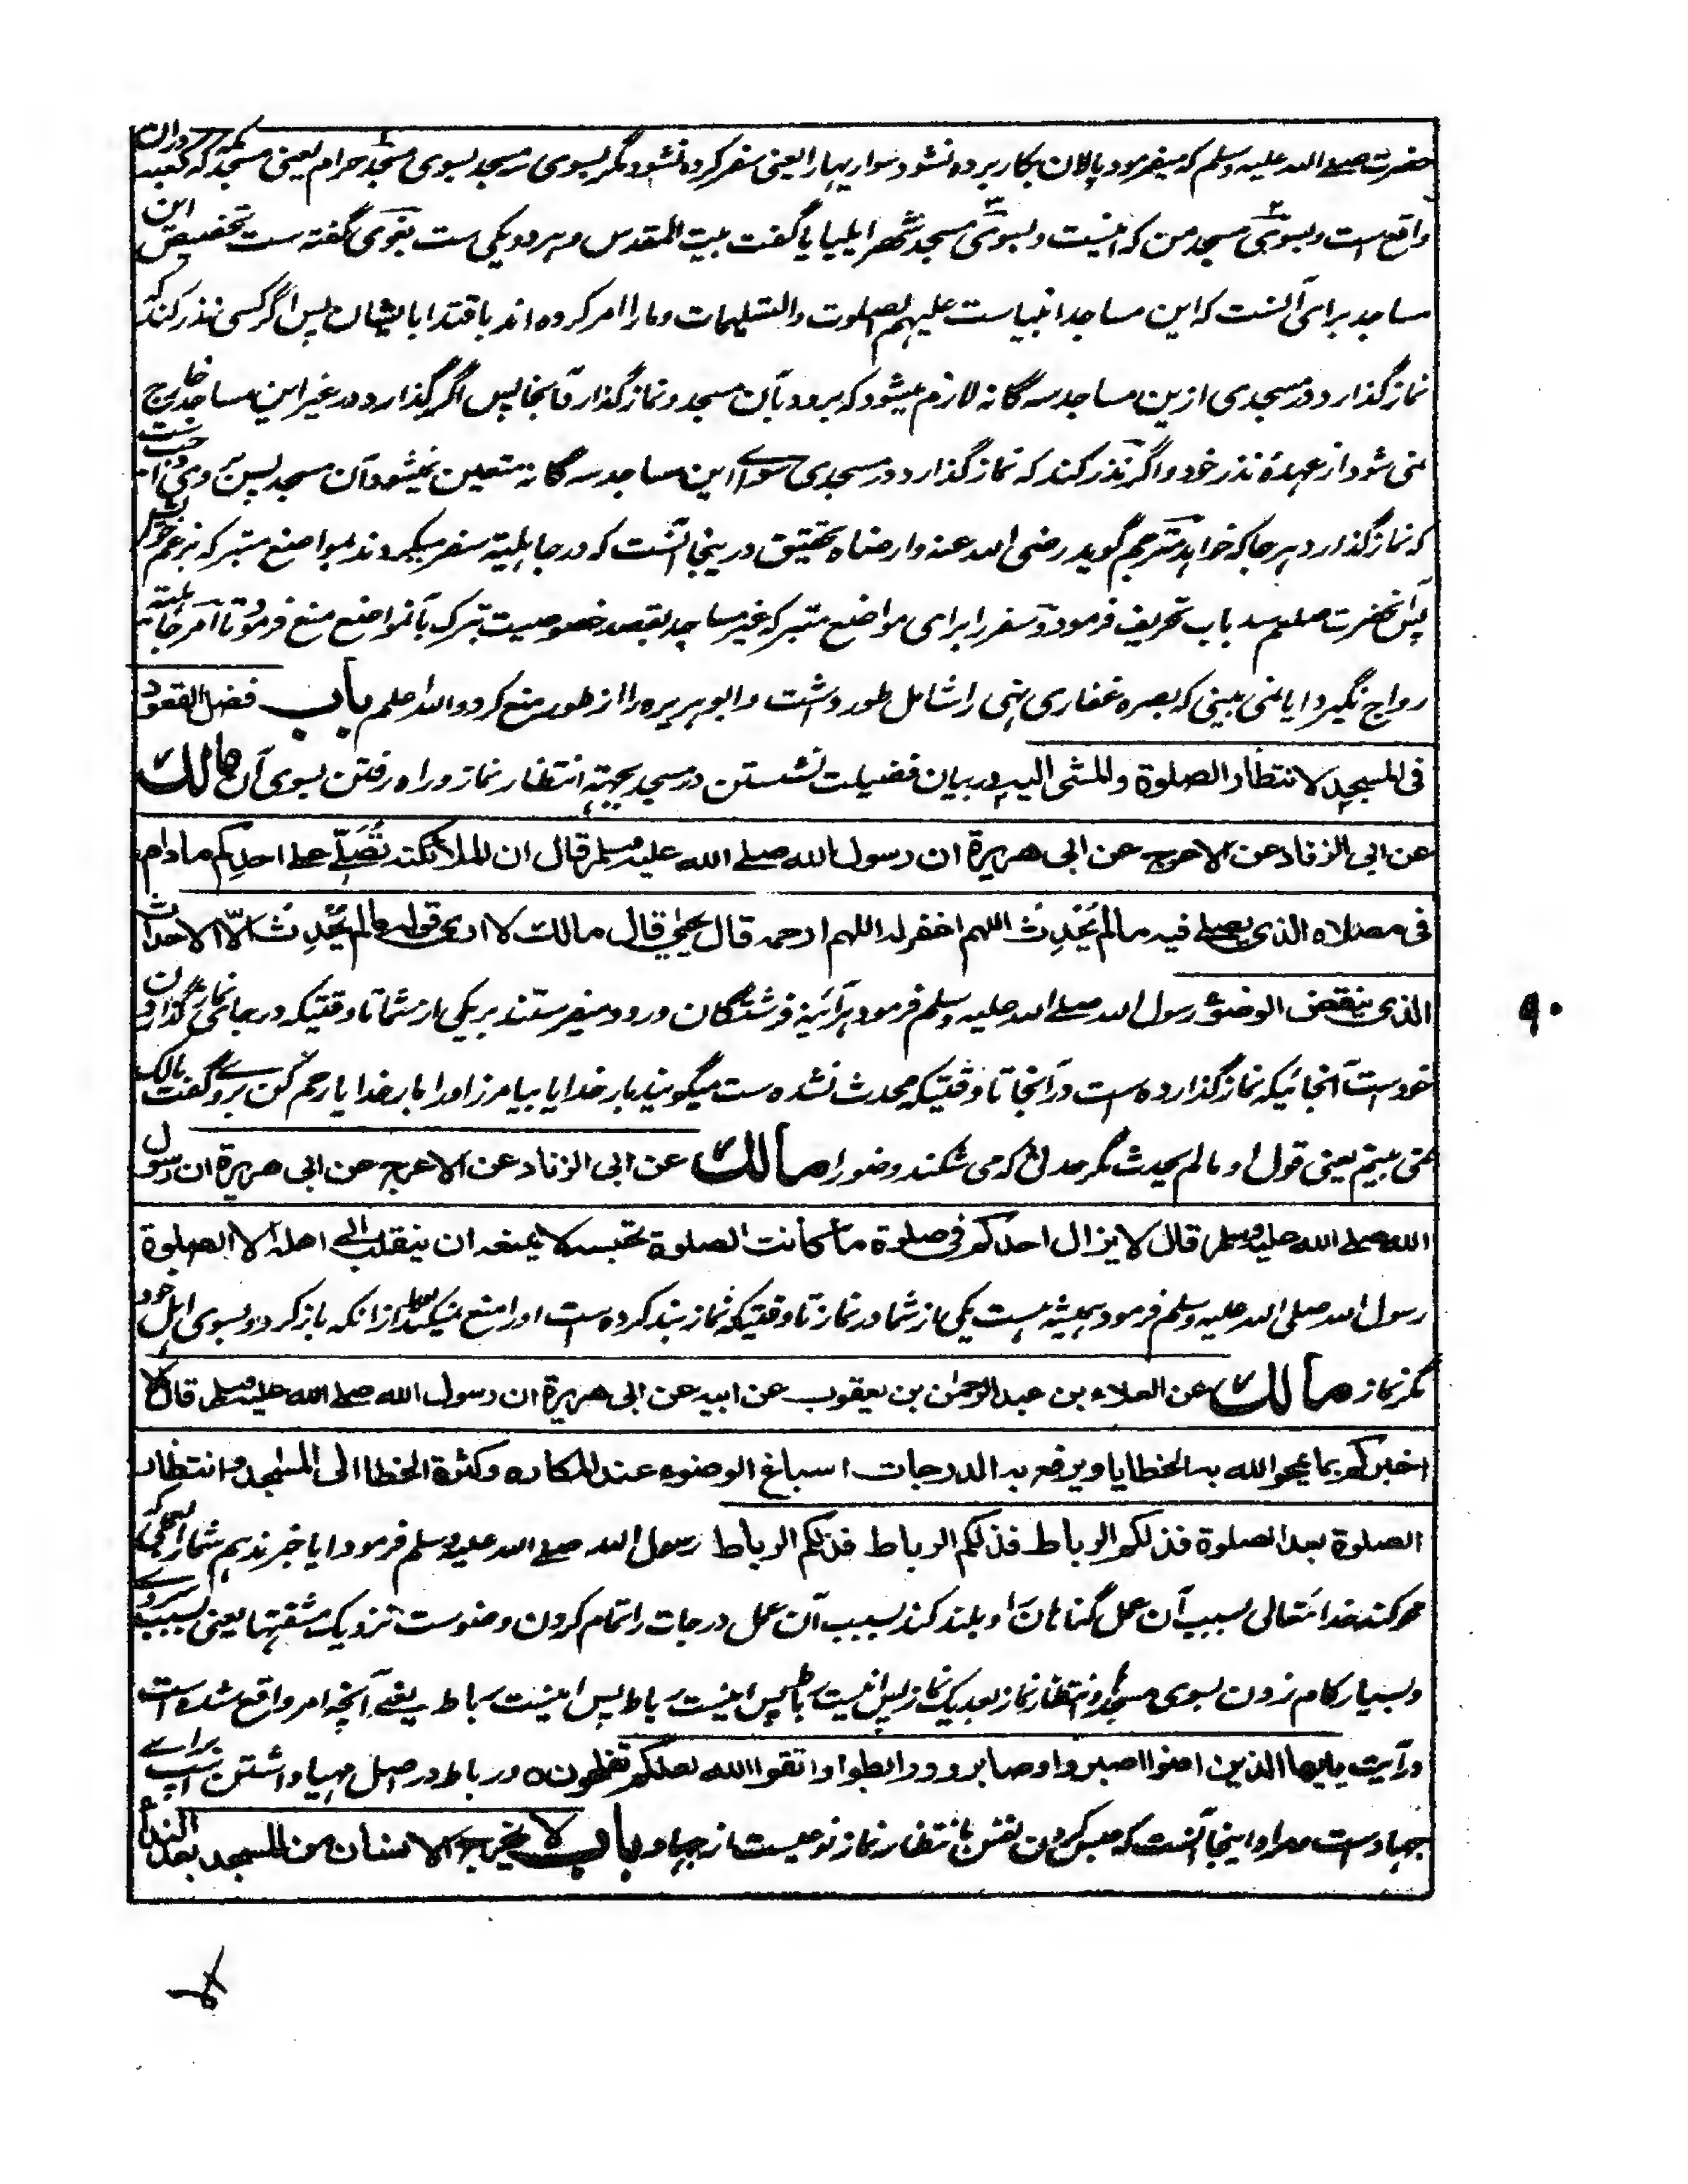 حضرت صلے الله علیه وسلم که میفرمود پالان بکار برده نشود سواریها را یعنی سفر کرده نشود مگر بسوی سه مسجد بسوی مسجد حرام یعنی مسجدیکه کعبه دران
واقع ست و بسوی مسجد من که اینست و بسوی مسجد شهر ایلیا یا گفت بیت المقدس و هر دو یکی ست بغوی گفته ست تخصیص این
مساجد برای آنست که این مساجد انبیاست علیهم الصلوت والتسلیمات و ما را امر کرده اند باقتدا بایشان پس اگر کسی نذر کند که
نماز گذارد در مسجدی ازین مساجد سه گانه لازم میشود که برود بآن مسجد و نماز گذارد آنجا پس اگر گذارد در غیر این مساجد خارج
نمی شود از عهدۀ نذر خود و اگر نذر کند که نماز گذارد در مسجدی سوای این مساجد سه گانه متعین نمیشود آن مسجد پس وی را
که نماز گذارد هر جا که خواهد مترجم گوید رضی الله عنه وارضاه تحقیق درینجا آنست که در جاهلیة سفر میکردند بمواضع متبرکه بزعم خویش
پس آنحضرت صلعم سد باب تحریف فرمود و سفر را برای مواضع متبرکه غیر مساجد بقصد خصوصیت تبرک بآنمواضع منع فرمود تا امر جاهلیة
رواج نگیرد ایا نمی بینی که بصره غفاری نهی را شامل طور دشت و ابو هریره را از طور منع کرد والله اعلم باب فضل القعود
فی المسجد لانتظار الصلوة والمشی الیه در بیان فضیلت نشستن در مسجد بجهتهٔ انتظار نماز و راه رفتن بسوی آن مالك
عن ابی الزناد عن الاعرج عن ابی هریرة ان رسول الله صلے الله علیه وسلم قال ان الملائکة تُصَلّے علے احدکم مادام
فی مصلاه الذی یصلے فیه مالم یُحْدِث اللهم اغفر له اللهم ارحمه قال یحیی قال مالك لا اری قوله مالم یُحْدِث الّا الاحداث
الذی ینقض الوضوء رسول الله صلے الله علیه وسلم فرمود هرآئینه فرشتگان درود میفرستند بر یکی از شما تا وقتیکه در جای نماز گذاردن
خودست آنجائیکه نماز گذارده است در آنجا تا وقتیکه محدث نشده ست میگویند بار خدایا بیامرز او را بار خدایا رحم کن بروے گفت مالك
نمی بینم یعنی قول او مالم یحدث مگر حدثی که می شکند وضو را مالك عن ابی الزناد عن الاعرج عن ابی هریرة ان رسول
الله صلے الله علیه وسلم قال لا یزال احدکم فی صلوة ما کانت الصلوة تحبسه لا یمنعه ان ینقلب الے اهله الا الصلوة
رسول الله صلی الله علیه وسلم فرمود همیشه هست یکی از شما در نماز تا وقتیکه نماز بند کرده است او را منع نمیکند از آنکه باز گردد بسوی اهل خود
مگر نماز مالك عن العلاء بن عبد الرحمٰن بن یعقوب عن ابیه عن ابی هریرة ان رسول الله صلے الله علیه وسلم قال الا
اخبرکم بما یمحو الله به الخطایا ویرفع به الدرجات اسباغ الوضوء عند المکاره وکثرة الخطا الی المسجد وانتظار
الصلوة بعد الصلوة فذلکم الرباط فذلکم الرباط فذلکم الرباط رسول الله صلے الله علیه وسلم فرمود ایا خبر ندهم شما را بعملیکه
محو کند خدا تعالی بسبب آن عمل گناهان را و بلند کند بسبب آن عمل درجات را تمام کردن وضوست نزدیک مشقتها یعنی بسبب سردے
و بسیار گام زدن بسوی مسجد و انتظار نماز بعد یک نماز پس اینست رباط پس اینست رباط پس اینست رباط یعنے آنچه امر واقع شده است
در آیت یایها الذین امنوا اصبروا وصابروا ورابطوا واتقوا الله لعلکم تفلحون ہ و رباط در اصل مهیا داشتن اسپ براے
جهادست مراد اینجا آنست که حبس کردن نفس بانتظار نماز نوعیست از جهاد باب لا یخرج الانسان من المسجد بعد النداء
۹۰